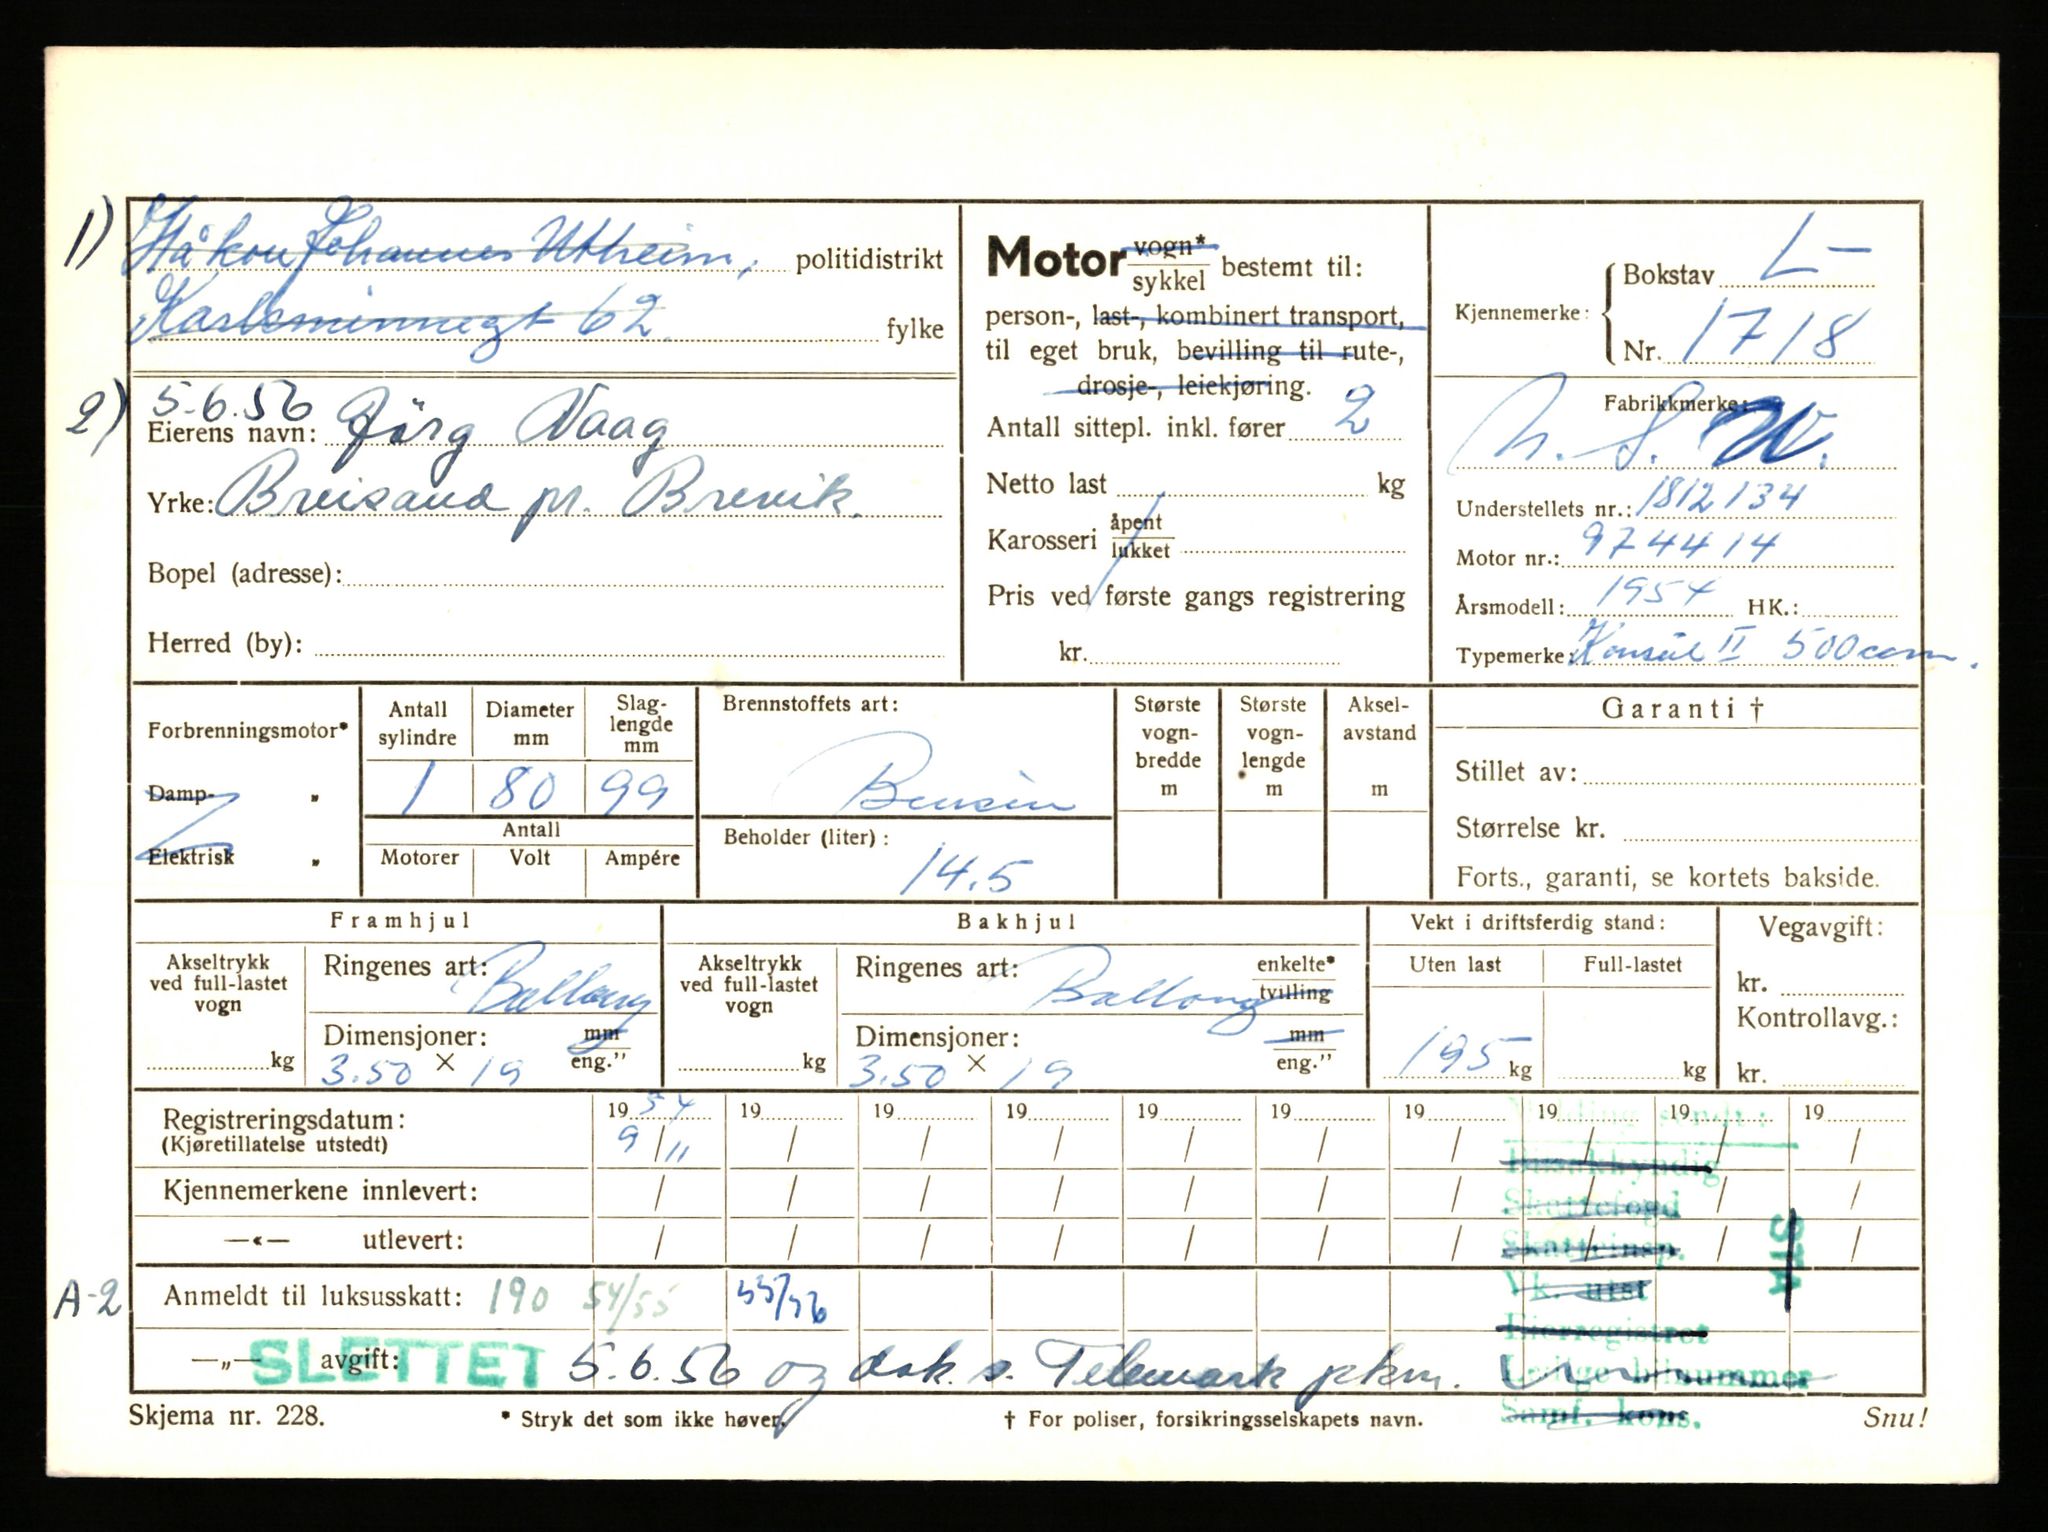 1) Håkon Johannes Utheim, politidistrikt
Karlsminnegt 62. fylke
2) 5.6.56
Eierens navn: Jörg Vaag
Yrke: Breisand pr. Brevik.
Bopel (adresse):
Herred (by):
Motor vogn* / sykkel bestemt til:
person-, last-, kombinert transport,
til eget bruk, bevilling til rute-,
drosje-, leiekjøring.
Antall sittepl. inkl. fører 2
Netto last kg
Karosseri åpent / lukket
Pris ved første gangs registrering
kr.
Kjennemerke: Bokstav L-
Nr. 1718
Fabrikkmerke:
N. S. W.
Understellets nr.: 1812134
Motor nr.: 974414
Årsmodell: 1954 HK.:
Typemerke: Konsul II 500ccm.
Forbrenningsmotor*
Damp- „
Elektrisk „
Antall sylindre 1
Diameter mm 80
Slag-lengde mm 99
Antall
Motorer Volt Ampére
Brennstoffets art:
Bensin
Beholder (liter):
14.5
Største vogn-bredde m
Største vogn-lengde m
Aksel-avstand m
Garanti †
Stillet av:
Størrelse kr.
Forts., garanti, se kortets bakside.
Framhjul
Akseltrykk ved full-lastet vogn
kg
Ringenes art: Ballong
Dimensjoner: mm / eng."
3.50 × 19
Bakhjul
Akseltrykk ved full-lastet vogn
kg
Ringenes art: Ballong enkelte* / tvilling
Dimensjoner: mm / eng."
3.50 × 19
Vekt i driftsferdig stand:
Uten last Full-lastet
195 kg kg
Vegavgift:
kr.
Kontrollavg.:
kr.
Registreringsdatum: 1954 19 19 19 19 19 19 19 19 19
(Kjøretillatelse utstedt) 9/11 / / / / / / / / /
Kjennemerkene innlevert: / / / / / / / / / /
—«— utlevert: / / / / / / / / / /
A-2 Anmeldt til luksusskatt: 190 54/55 55/56
—„— avgift: SLETTET 5.6.56 og dok. s. Telemark pkm.
Melding sendt:
Bilsakkyndig
Skattefogd
Skatteinsp.
Vk. utst
Eierregistret
Ledige bilnummer
Samf. kons.
STA
Skjema nr. 228. * Stryk det som ikke høver. † For poliser, forsikringsselskapets navn. Snu!